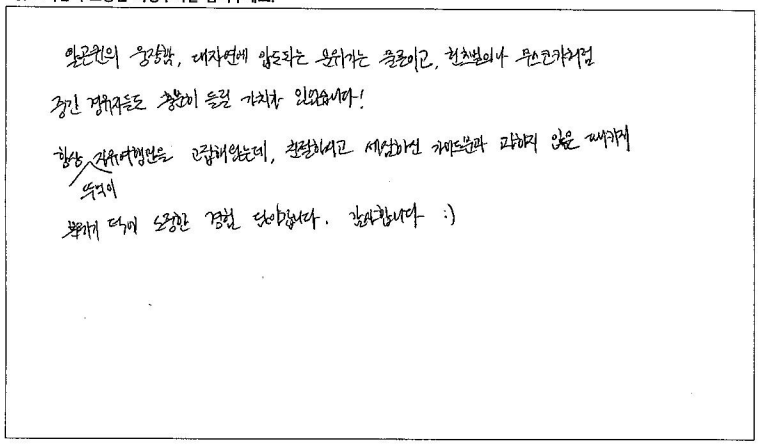 알곤퀸의 웅장함, 대자연에 압도되는 분위기는 물론이고, 헌츠빌이나 무스코카처럼
중간 경유지들도 충분히 들릴 가치가 있었습니다!
항상 자유여행만을 고집해왔는데, 친절하시고 세심하신 가이드분과 과하지 않은 패키지
뚜벅이
덕에 소중한 경험 담아갑니다. 감사합니다 :)